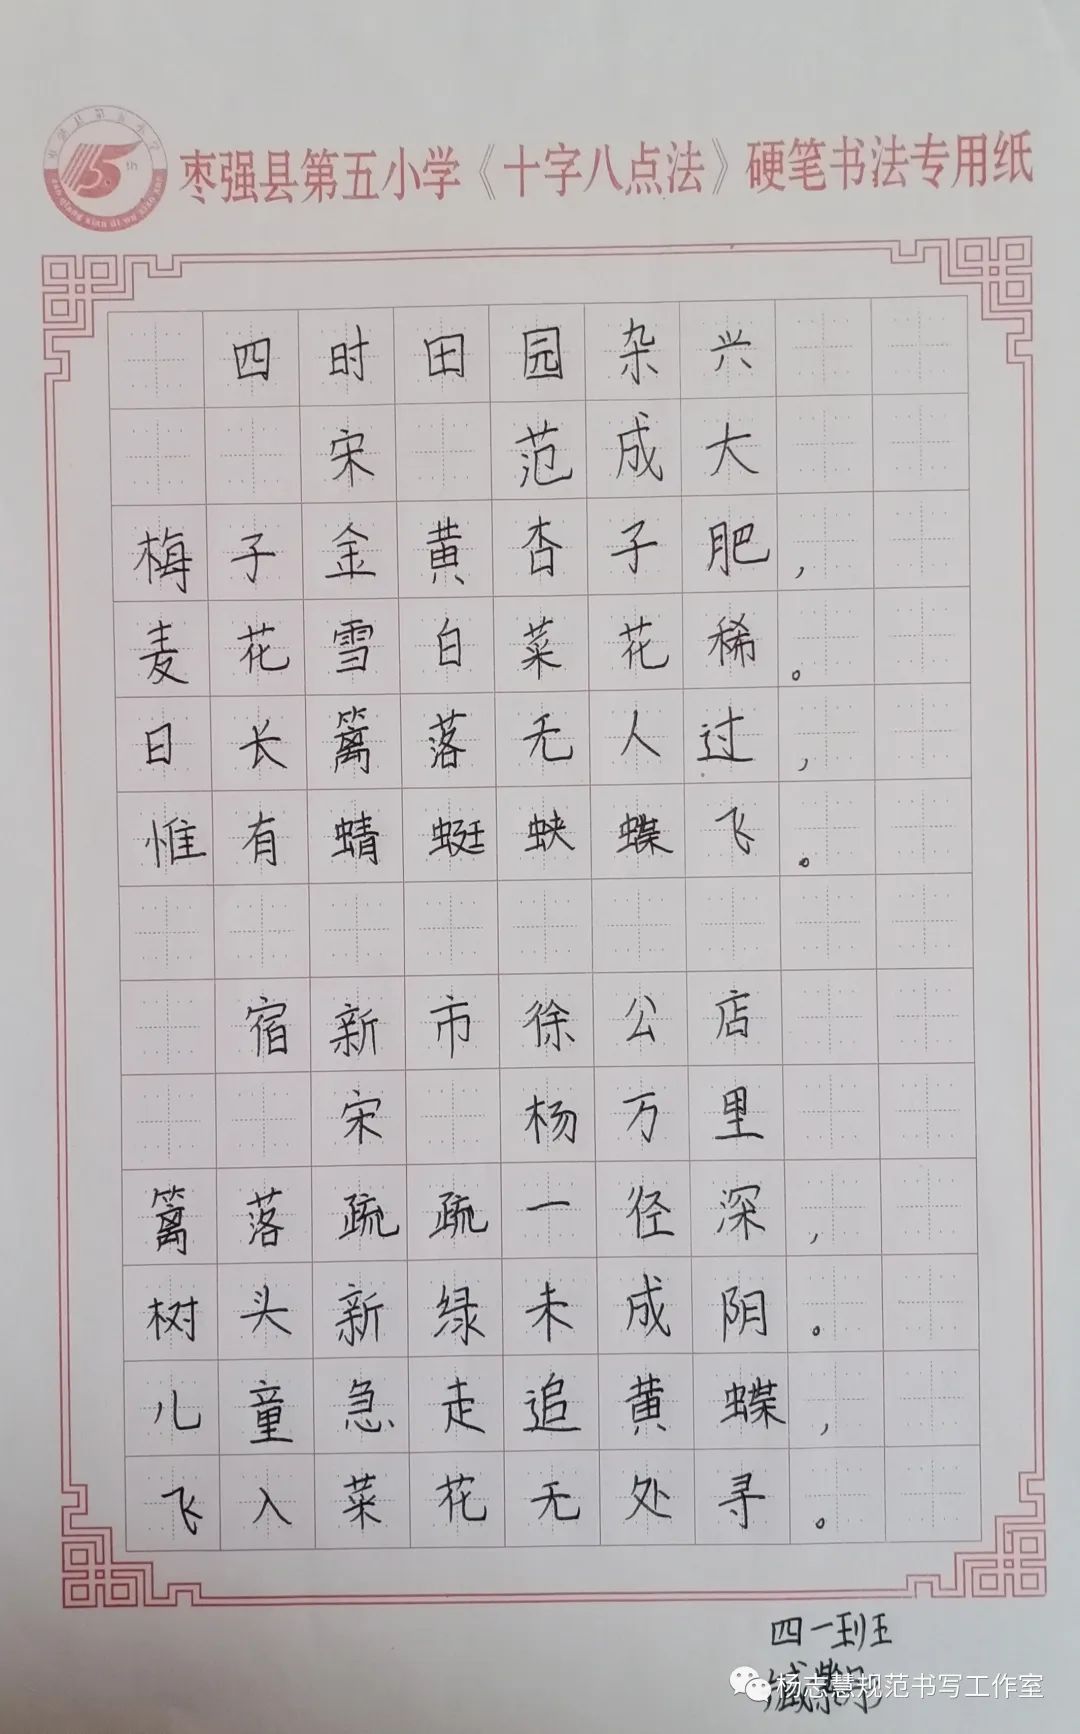 枣强县第五小学《十字八点法》硬笔书法专用纸
四时田园杂兴
宋 范成大
梅子金黄杏子肥，
麦花雪白菜花稀。
日长篱落无人过，
惟有蜻蜓蛱蝶飞。
宿新市徐公店
宋 杨万里
篱落疏疏一径深，
树头新绿未成阴。
儿童急走追黄蝶，
飞入菜花无处寻。
四一班
杨志慧规范书写工作室